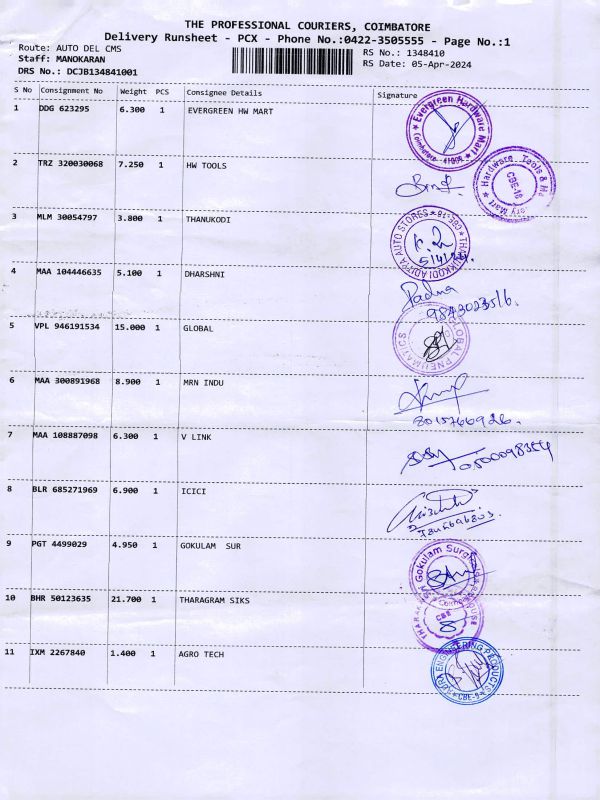 THE PROFESSIONAL COURIERS, COIMBATORE
Delivery Runsheet - PCX - Phone No.:0422-3505555 - Page No.:1
Route: AUTO DEL CMS
RS No.: 1348410
Staff: MANOKARAN
RS Date: 05-Apr-2024
DRS No.: DCJB134841001
S No Consignment No Weight PCS Consignee Details Signature
1 DDG 623295 6.300 1 EVERGREEN HW MART
Evergreen Hardware Mart
Coimbatore
2 TRZ 320030068 7.250 1 HW TOOLS
Hardware, Tools & Ha
CBE-18
3 MLM 30054797 3.800 1 THANUKODI
AUTO STORES
CBE-18
5/4/24
4 MAA 104446635 5.100 1 DHARSHNI
Padma
9843023516.
5 VPL 946191534 15.000 1 GLOBAL
GLOBAL PNEUMATICS
6 MAA 300891968 8.900 1 MRN INDU
8015766926.
7 MAA 108887098 6.300 1 V LINK
8 BLR 685271969 6.900 1 ICICI
9 PGT 4499029 4.950 1 GOKULAM SUR
Sri Gokulam Surgi
10 BHR 50123635 21.700 1 THARAGRAM SIKS
CBE
11 IXM 2267840 1.400 1 AGRO TECH
ENGINEERING PRODUCTS
CBE-9